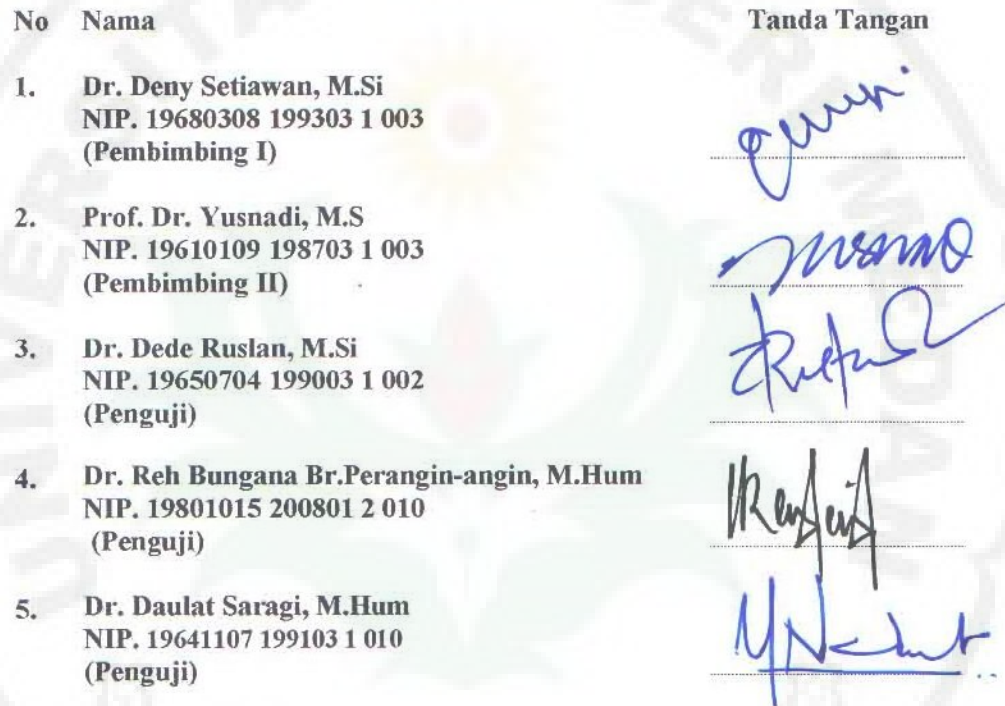 No Nama Tanda Tangan
1. Dr. Deny Setiawan, M.Si
NIP. 19680308 199303 1 003
(Pembimbing I)
2. Prof. Dr. Yusnadi, M.S
NIP. 19610109 198703 1 003
(Pembimbing II)
3. Dr. Dede Ruslan, M.Si
NIP. 19650704 199003 1 002
(Penguji)
4. Dr. Reh Bungana Br.Perangin-angin, M.Hum
NIP. 19801015 200801 2 010
(Penguji)
5. Dr. Daulat Saragi, M.Hum
NIP. 19641107 199103 1 010
(Penguji)